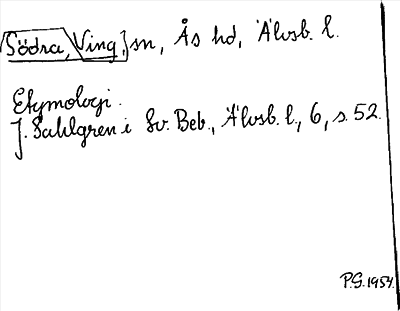 Södra Ving, sn, Ås hd, Älvsb. l.
Etymologi.
J. Sahlgren i Sv. Beb., Älvsb. l., 6, s. 52.
P.G. 1954.